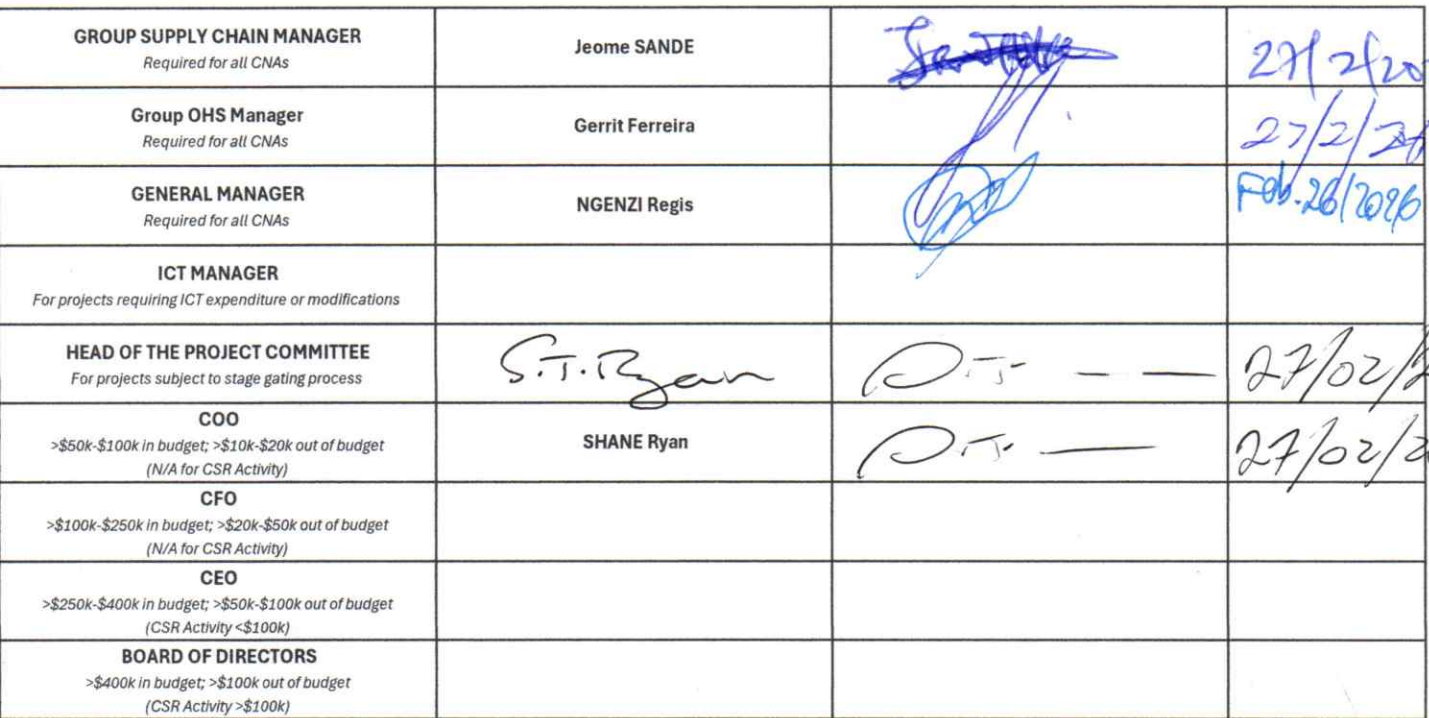 GROUP SUPPLY CHAIN MANAGER
Required for all CNAs
Jeome SANDE
27/2/20
Group OHS Manager
Required for all CNAs
Gerrit Ferreira
27/2/26
GENERAL MANAGER
Required for all CNAs
NGENZI Regis
Feb.26/2026
ICT MANAGER
For projects requiring ICT expenditure or modifications
HEAD OF THE PROJECT COMMITTEE
For projects subject to stage gating process
S.T.Ryan
27/02/2
COO
>$50k-$100k in budget; >$10k-$20k out of budget
(N/A for CSR Activity)
SHANE Ryan
27/02/2
CFO
>$100k-$250k in budget; >$20k-$50k out of budget
(N/A for CSR Activity)
CEO
>$250k-$400k in budget; >$50k-$100k out of budget
(CSR Activity <$100k)
BOARD OF DIRECTORS
>$400k in budget; >$100k out of budget
(CSR Activity >$100k)